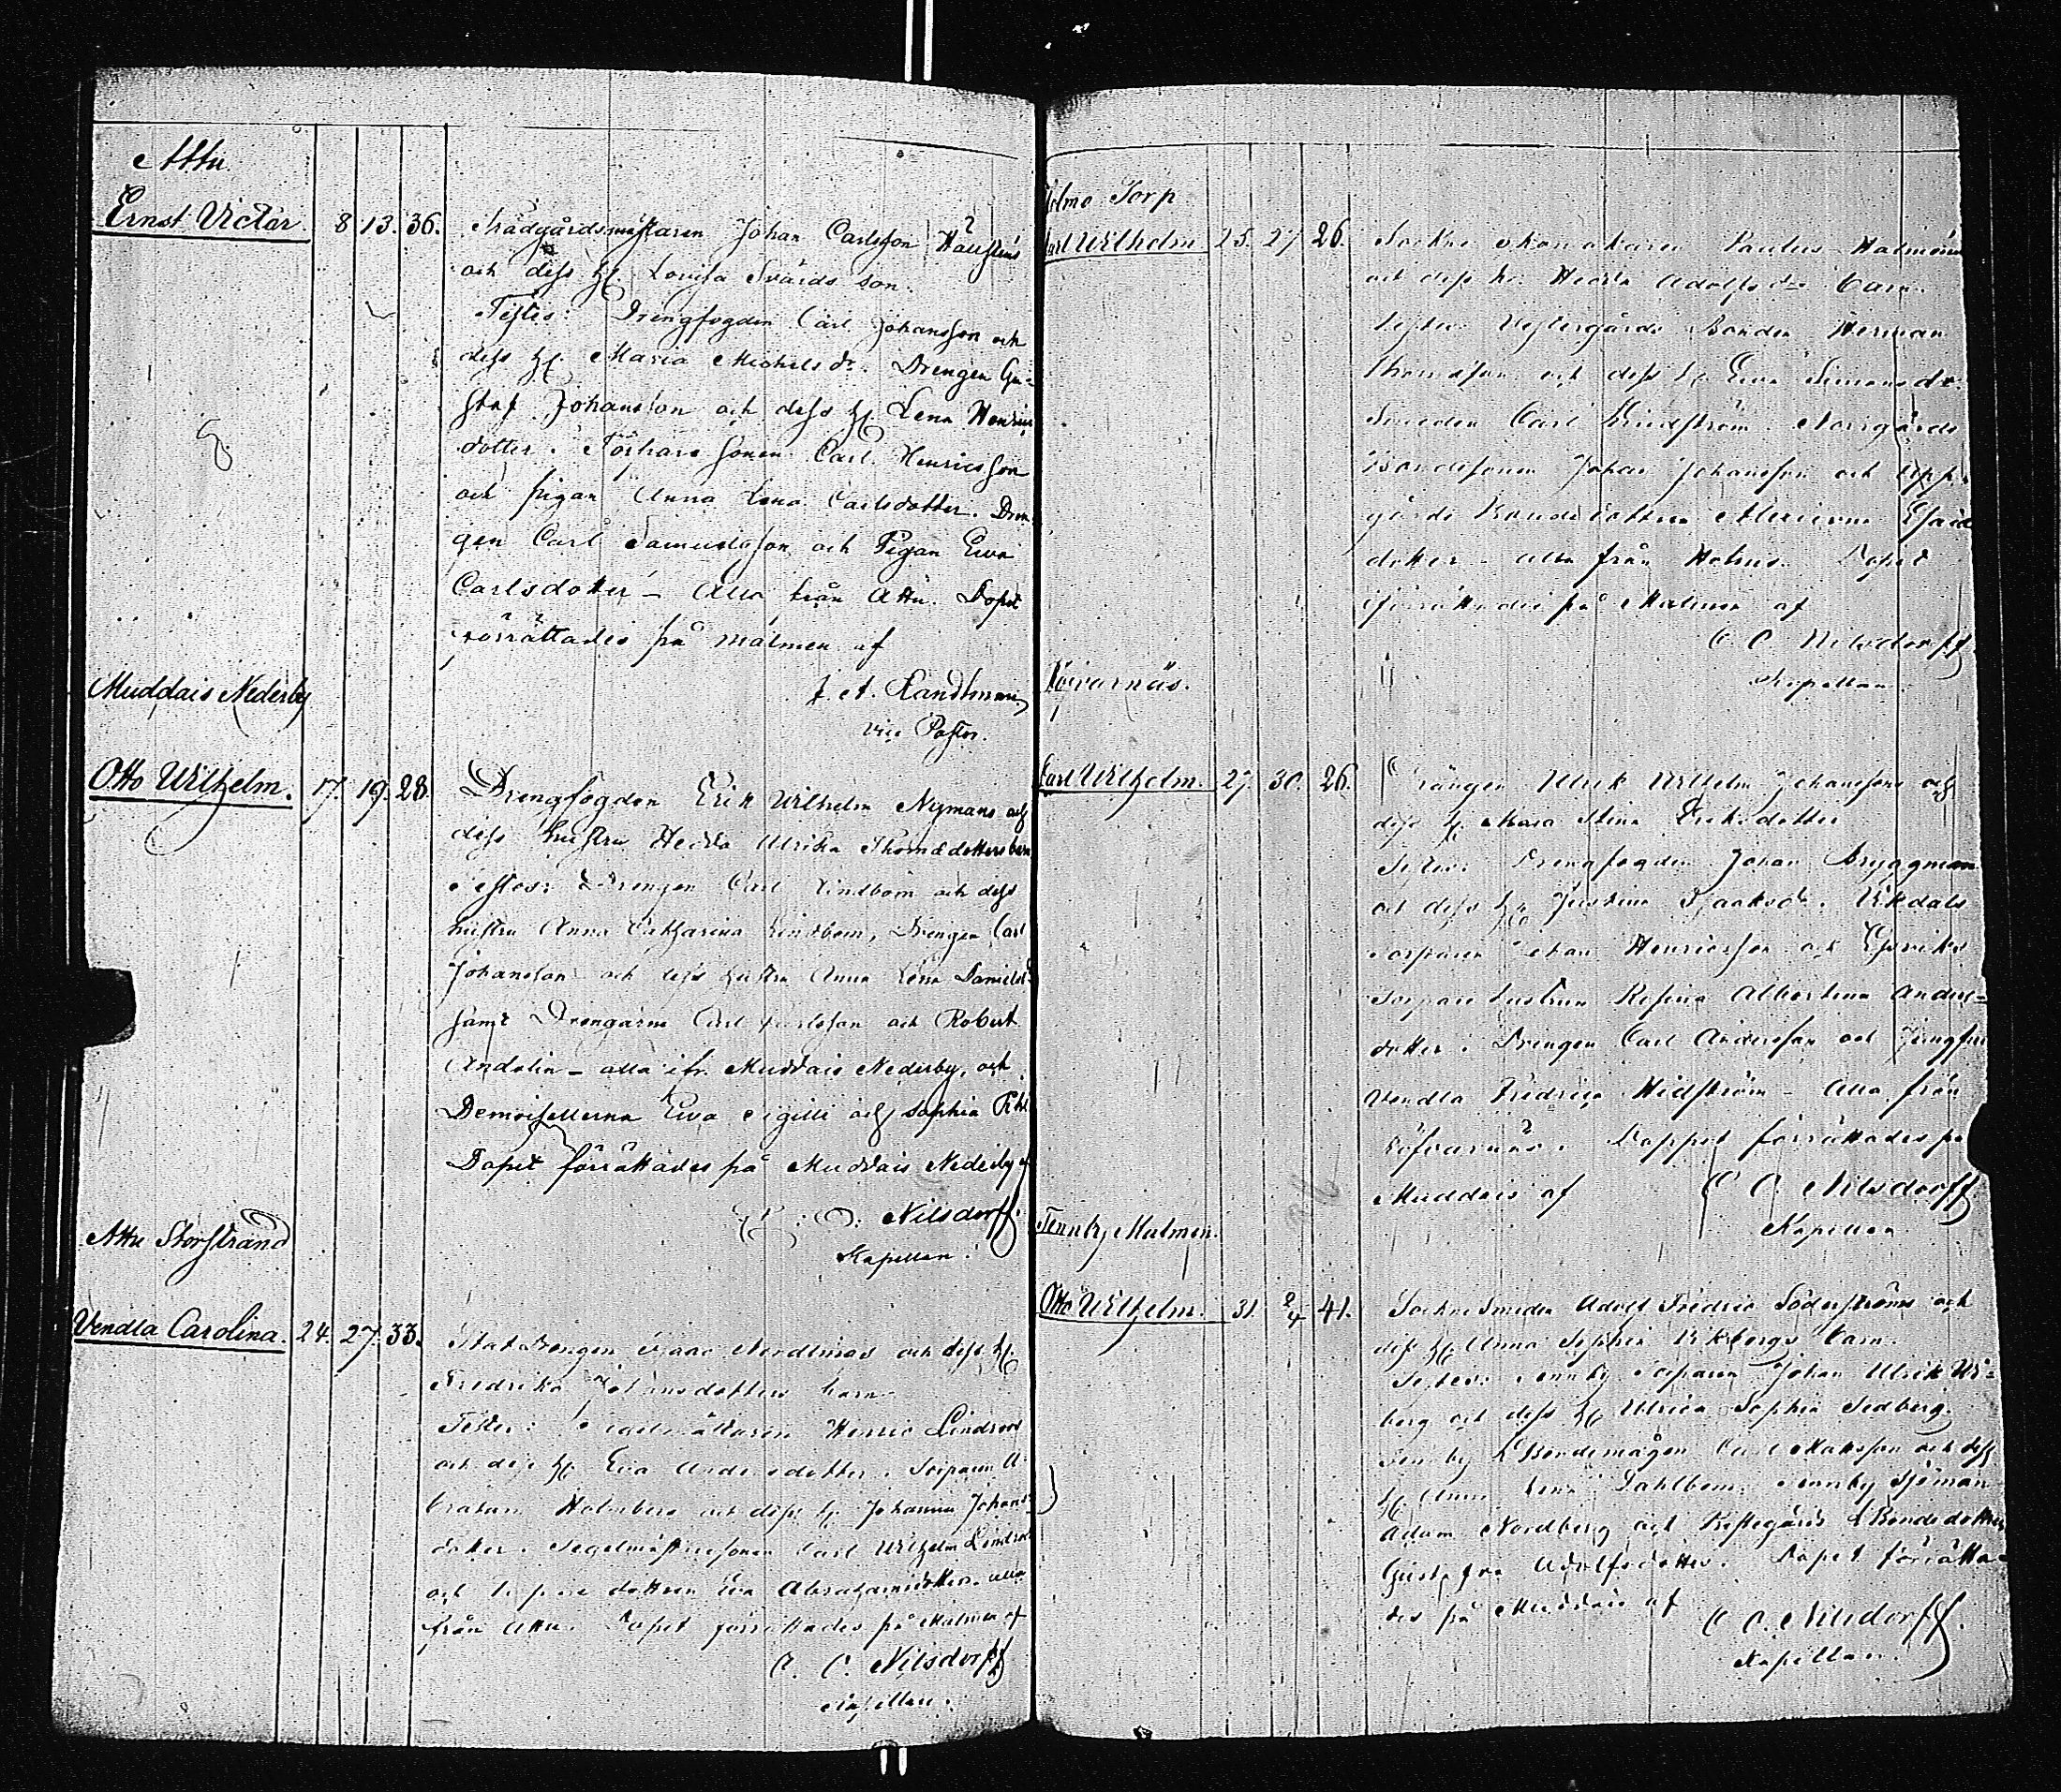 Attu.
Ernst Victor. 8 13. 36. Trädgårdsmästaren Johan Carlsson
och dess h. Lovisa Svärds son.
Testes: Drengfogden Carl Johansson och
dess h. Maria Michelsdr. Drengen Gu=
staf Johansson och dess h. Lena Henrics
dotter. Torpare sonen Carl Henricsson
och pigan Anna Lena Carlsdotter. Dren
gen Carl Samuelsson och Pigan Eva
Carlsdotter – Alla från Attu. Dopet
förrättades på malmen af
J. A. Sandman
vice Pastor.
Muddais Nederby
Otto Wilhelm. 17. 19. 28. Drengfogden Erik Wilhelm Nymans och
dess hustru Hedda Ulrika Thomædotters barn
Testes: Drengen Carl Lindbom och dess
hustru Anna Catharina Lindbom, Drengen Carl
Johansson och dess hustru Anna Lena Danielsd
samt Drengarne Carl Carlsson och Robert
Andelin – alla ifr. Muddais Nederby, och
Demoisellerna Eva och Sophia
Dopet förrättades på Muddais Nederby af
C. C. Nilsdorff.
Kapellan.
Attu Storstrand
Vendla Carolina. 24. 27. 33. Statdrengen Isaac Nordlinds och dess h.
Fredrika Johansdotters barn
Testes: Segelmästaren Henric Lindroos
och dess h. Eva Andersdotter. Torparen A=
braham Holmberg och dess h. Johanna Johans=
dotter. Segelmästaresonen Carl Wilhelm Lindroos
och torpare dottren Eva Abrahamsdotter. alla
från Attu. Dopet förrättades på Malmen af
C. C. Nilsdorff
Kapellan.
Holma Torp
Carl Wilhelm 25. 27. 26. Sockneskomakaren Paulus Malmströms
och dess h. Hedda Adolfsdrs barn.
Testes: Vestergårds Bonden Herman
Thomasson och dess h. Eva Simonsdr
Smeden Carl Lindström. Norrgårds
Bondesonen Johan Johansson och Upp=
gårds Bondedottren Esaias
dotter – alla från Holma. Dopet
förrättades på Malmen af
C. C. Nilsdorff
Kapellan.
Löfvarnäs.
Carl Wilhelm. 27. 30. 26. Drängen Ulrik Wilhelm Johanssons och
dess h. Maria Stina Eriksdotter
Testes: Drengfogden Johan Bryggman
och dess h. Justina Isaksdr. Vikdals
Torparen Johan Henricsson och
Torpare hustrun Rosina Albertina Anders=
dotter. Drengen Carl Andersson och Jungfru
Vendla Fredrica Hidström – Alla från
Löfvarnäs. Doppet förrättades på
Muddais af C. C. Nilsdorff
Kapellan
Tennby Malmen.
Otto Wilhelm. 31. 2/4 41. Socknesmeden Adolf Fredric Söderströms och
dess h. Anna Sophia Vikbergs barn.
Testes: Tennby Torparen Johan Ulrik Wi=
berg och dess h. Ulrica Sophia Sedberg.
Tennby Bondemågen Carl Mattsson och dess
h. Anna Lena Dahlbom. Tennby Sjöman
Adam Nordberg och Prestegårds Bondedottren
Gustafva Adolfsdotter. Dopet förrätta=
des på Muddais af C. C. Nilsdorff.
Kapellan.